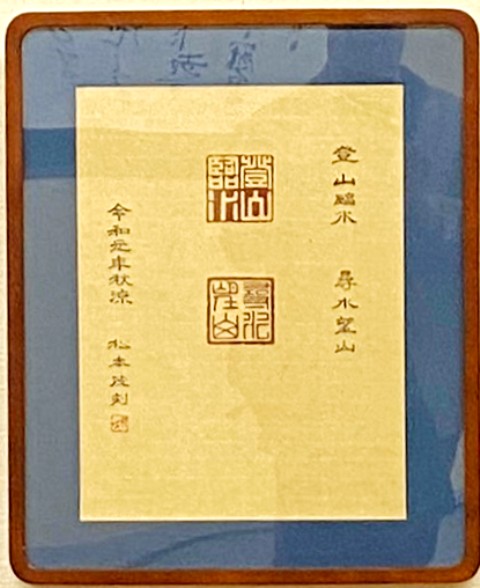 登山臨水 尋水望山
登山
臨水
尋水
望山
令和元年秋涼 松本 刻